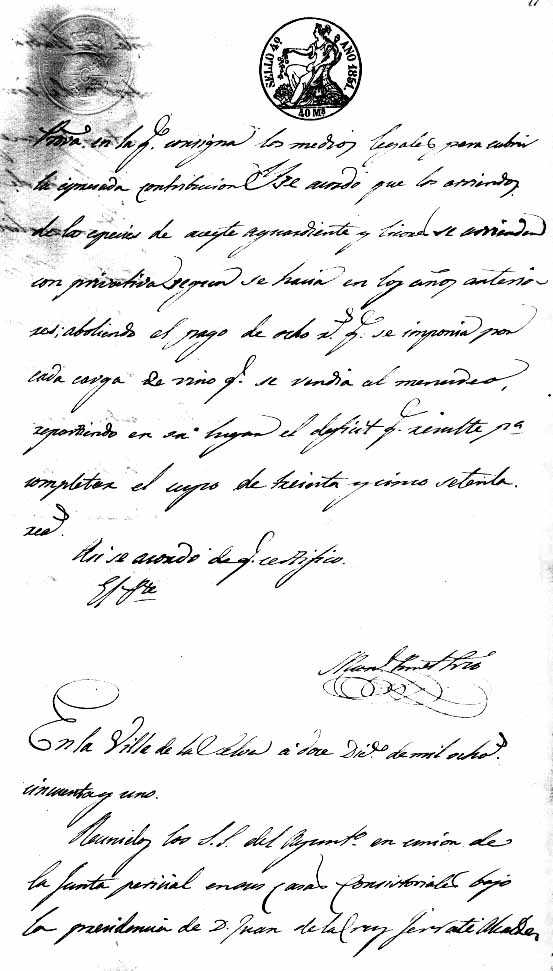 SELLO 4º AÑO 1851.
40 Ms
Prova. en la q.e consigna los medios legales para cubrir
la espresada contribucion Se acordo que los arriendos
de la especies de aceyte aguardiente y licores se arrienden
con privativa segun se hacia en los años anterio-
res; aboliendo el pago de ocho r.s q.e se imponia por
cada carga de vino q.e se vendia al menudeo,
repartiendo en su lugar el deficit q.e resulte pa
completar el cupo de treienta y cinco setenta.
rea.s
Asi se acordo de q.e certifico.
En la Villa de la Selva á doze Dic.e de mil ocho.s
cincuenta y uno.
Reunidos los S.S. del Ayunt.o en union de
la Junta pericial en sus casas Consistoriales bajo
la presidencia de D. Juan de la Cruz Serrate Alcalde,